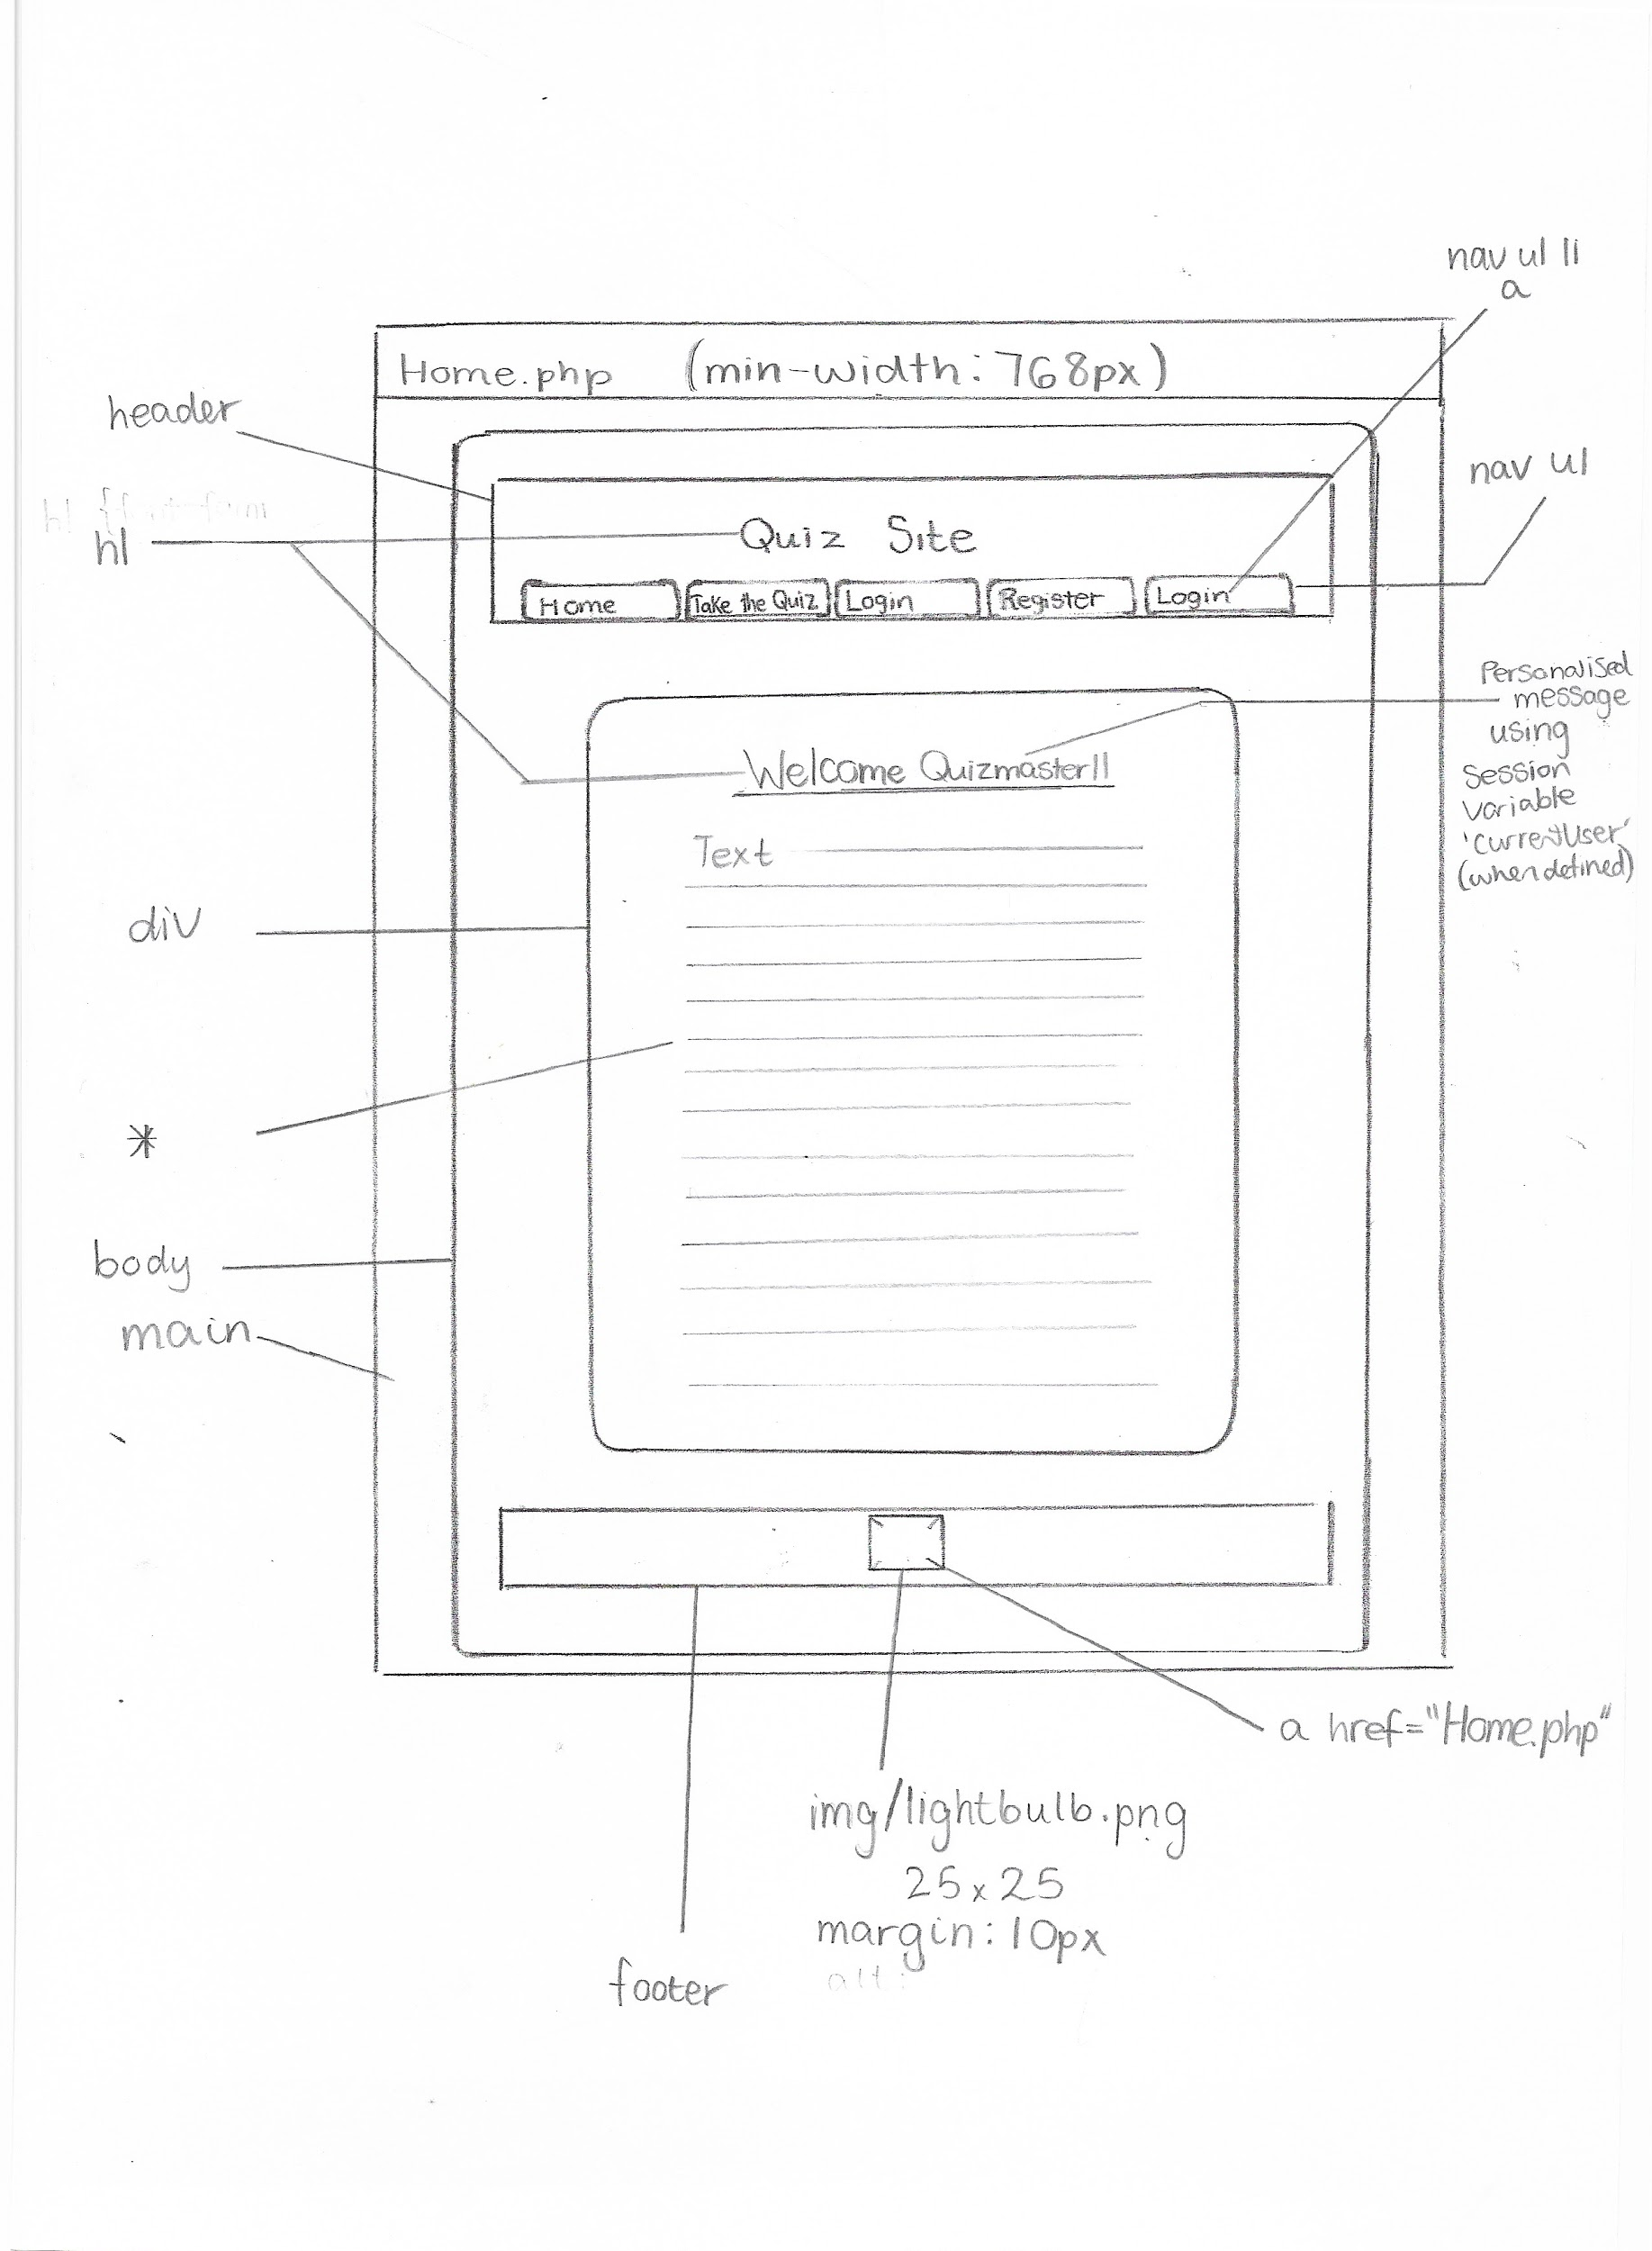 nav ul li
a
Home.php (min-width: 768px)
header
nav ul
h1
Quiz Site
Home Take the Quiz Login Register Login
Personalised
message
using
Session
Variable
'CurrentUser'
(when defined)
Welcome Quizmaster11
Text
div
*
body
main
a href="Home.php"
img/lightbulb.png
25x25
margin: 10px
alt:
footer